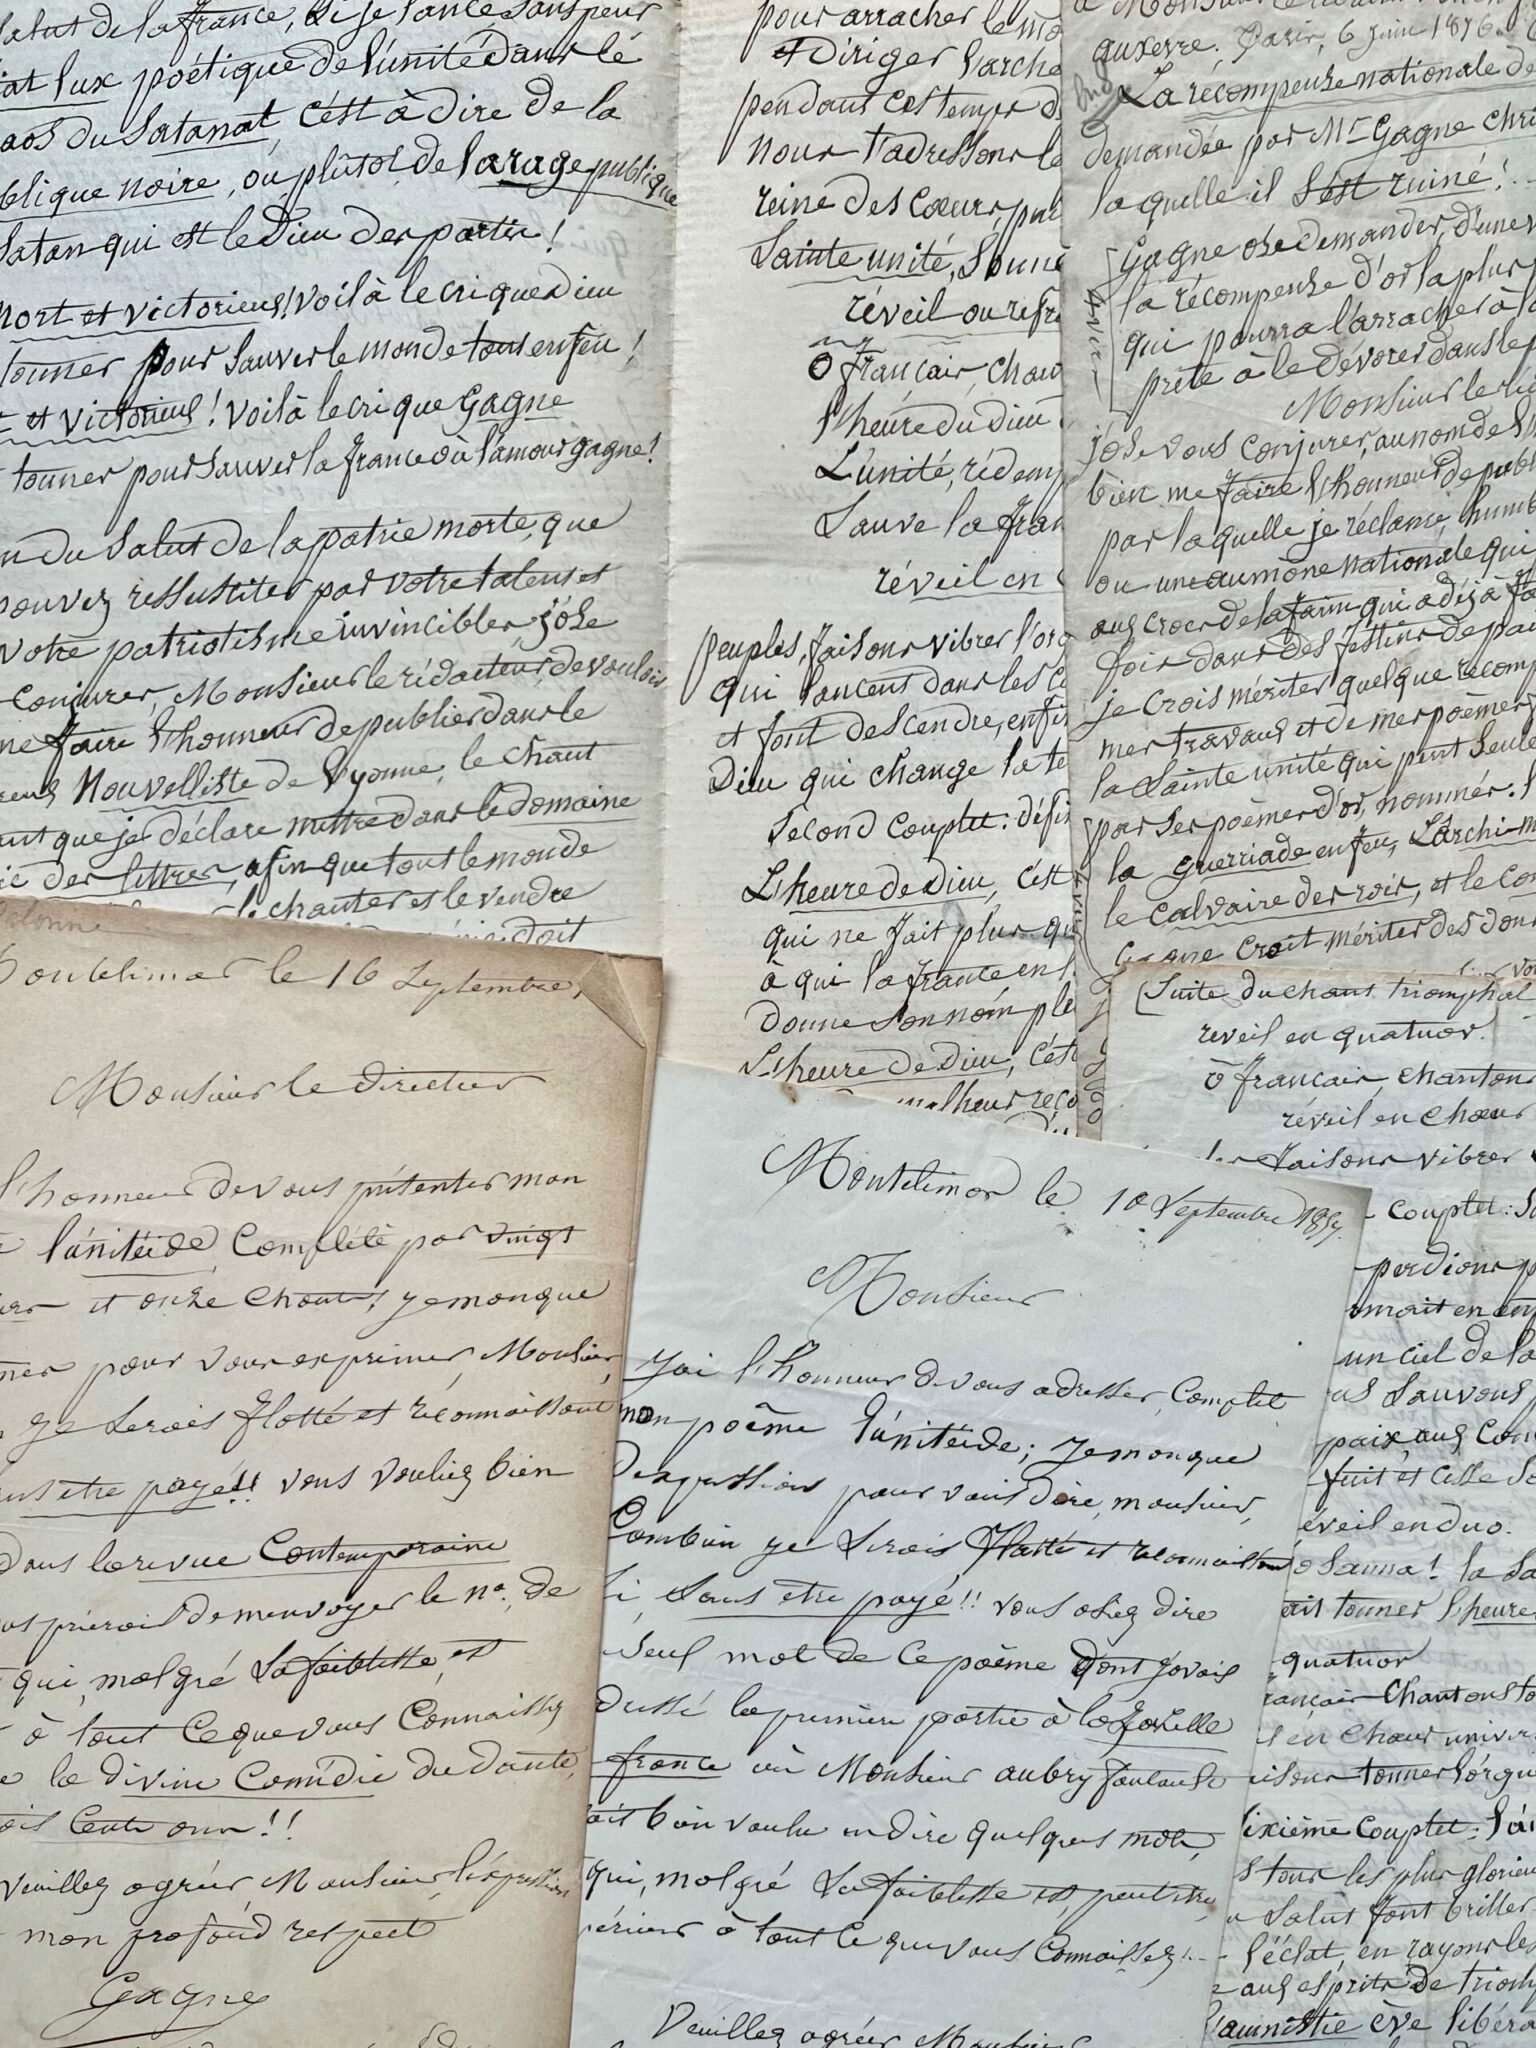 salut de la france, si je lance, sans peur
fiat lux poétique de l'unité dans le
chaos du Satanat, c'est à dire de la
publique noire, ou plûtot, de la rage publique
Satan qui est le Dieu des partis!
mort et victorieux! voilà le cri que Dieu
tonner pour sauver le monde tout en feu!
et victorieux! voilà le cri que Gagne
tonner pour sauver la france où l'amour gagne!
du Salut de la patrie morte, que
pouvez ressusciter par votre talent et
votre patriotisme invincibles, j'ose
conjurer, Monsieur le rédacteur, de vouloir
me faire l'honneur de publier dans le
Nouvelliste de l'yonne, le chant
que je déclare mettre dans le domaine
des lettres, afin que tout le monde
le chanter et le vendre
doit
pour arracher le mo
et Diriger l'arche
pendant ces temps d
nous t'adressons le
reine des cœurs, pur
Sainte unité, Sonne
réveil ou refr
ô français, chan
l'heure du Dieu
L'unité, rédemp
Sauve la fran
réveil en
peuples, faisons vibrer l'org
qui lancent dans les c
et font descendre, enfin
Dieu qui change la te
Second couplet: défin
L'heure de Dieu, c'est
qui ne fait plus qu
à qui la france en
donne son nom ple
L'heure de Dieu, c'est
malheur reco
auxerre. Paris, 6 juin 1876.
La récompense nationale de
demandée par Mr Gagne chri
laquelle il s'est ruiné!
Gagne ose demander, d'une v
la récompense d'or la plus
qui pourra l'arracher à la
prête à le dévorer dans le p
Monsieur le ré
j'ose vous conjurer, au nom de l'
bien me faire l'honneur de publ
par laquelle je réclame, humb
ou une aumône nationale qui
aux crocs de la faim qui a déjà fa
fois dans des festins de pai
je crois mériter quelque récomp
mes travaux et de mes poèmes
la Sainte unité qui peut seule
par ses poèmes d'or, nommés: l
la guerriade en feu, L'archi-m
le calvaire des rois, et le con
Gagne croit mériter des don
(Suite du chant triomphal
réveil en quatuor.
ô français, chantons
réveil en chœur
faisons vibrer
couplet:
perdions p
un ciel de la
Sauvons
paix aux con
fuit et cesse
réveil en duo.
Sanna! la Sa
fait tonner l'heure
quatuor
français chantons to
en chœur univer
faisons tonner l'orgue
Sixième couplet:
tous les plus glorieu
Salut font briller
l'éclat, en rayons les
aux esprits de triom
l'amnistie ève libéra
Montélimar le 16 Septembre,
Monsieur le directeur
l'honneur de vous présenter mon
l'unitéide, complété par vingt
et onze chants; je manque
pour vous exprimer, Monsieur,
je serais flatté et reconnaissant
sans être payé!! vous vouliez bien
Dans la revue Contemporaine
vous prierais de m'envoyer le no. de
qui, malgré sa faiblesse, est
à tout ce que vous connaissez
la divine Comédie du Dante,
cents ans!!
Veuillez agréer, Monsieur, l'expression
mon profond respect
Gagne
Montélimar le 10 Septembre 185
Monsieur
J'ai l'honneur de vous adresser, complet
mon poême l'unitéide; je manque
D'expressions pour vous dire, monsieur,
Combien je serais flatté et reconnaissant
Si, sans être payé!! vous osiez dire
Seul mot de ce poême dont j'avais
la première partie à la Gazette
france où Monsieur aubry foucault
bien voulu en dire quelques mots,
qui, malgré sa faiblesse est, peut être,
supérieur à tout ce que vous connaissez!
Veuillez agréer Monsieur